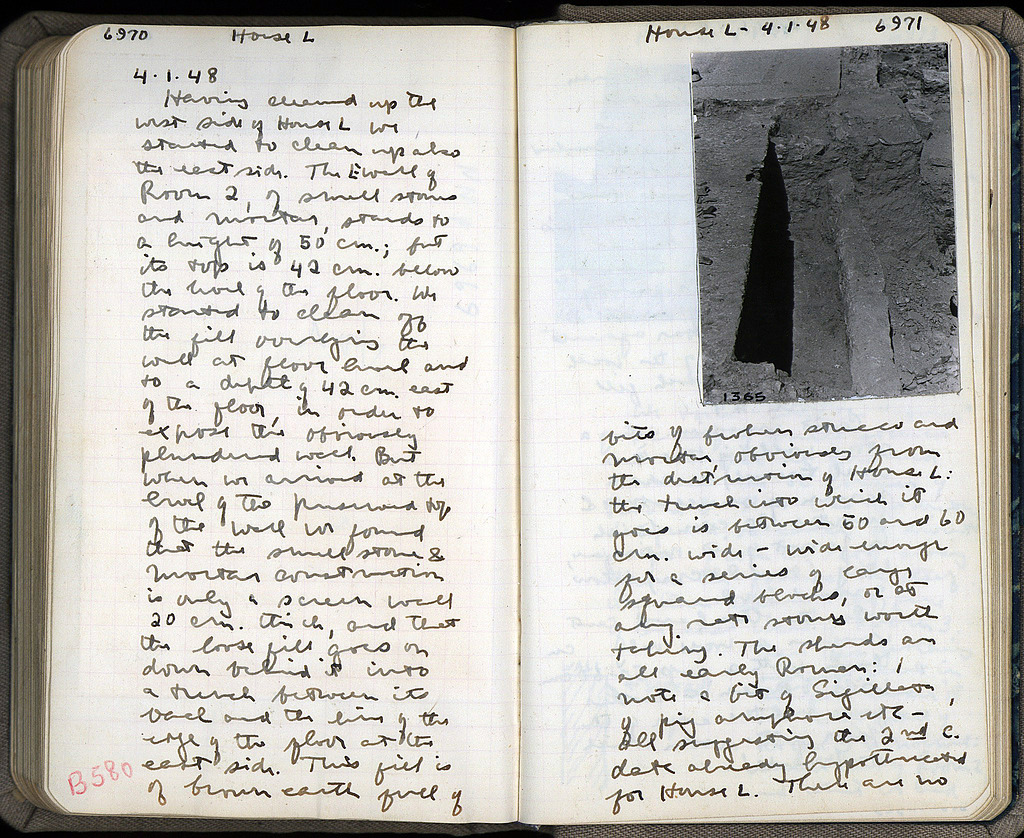 6970 House L
4.1.48
Having cleaned up the
west side of House L we
started to clean up also
the east side. The E wall of
Room 2, of small stones
and mortar, stands to
a height of 50 cm.; but
its top is 42 cm. below
the level of the floor. We
started to clean off
the fill overlying the
wall at floor level and
to a depth of 42 cm. east
of the floor, in order to
expose the obviously
plundered wall. But
when we arrived at the
level of the preserved top
of the wall we found
that the small stone &
mortar construction
is only a screen wall
20 cm. thick, and that
the loose fill goes on
down behind it into
a trench between its
back and the line of the
edge of the floor at the
east side. This fill is
of brown earth full of
B580
House L - 4.1.48 6971
1365
bits of broken stucco and
mortar, obviously from
the destruction of House L:
the trench into which it
goes is between 50 and 60
cm. wide - wide enough
for a series of large
squared blocks, or at
any rate stones worth
taking. The sherds are
all early Roman: I
note a bit of Sigillata,
of pig amphora etc -
all suggesting the 2nd c.
date already hypothecated
for House L. There are no